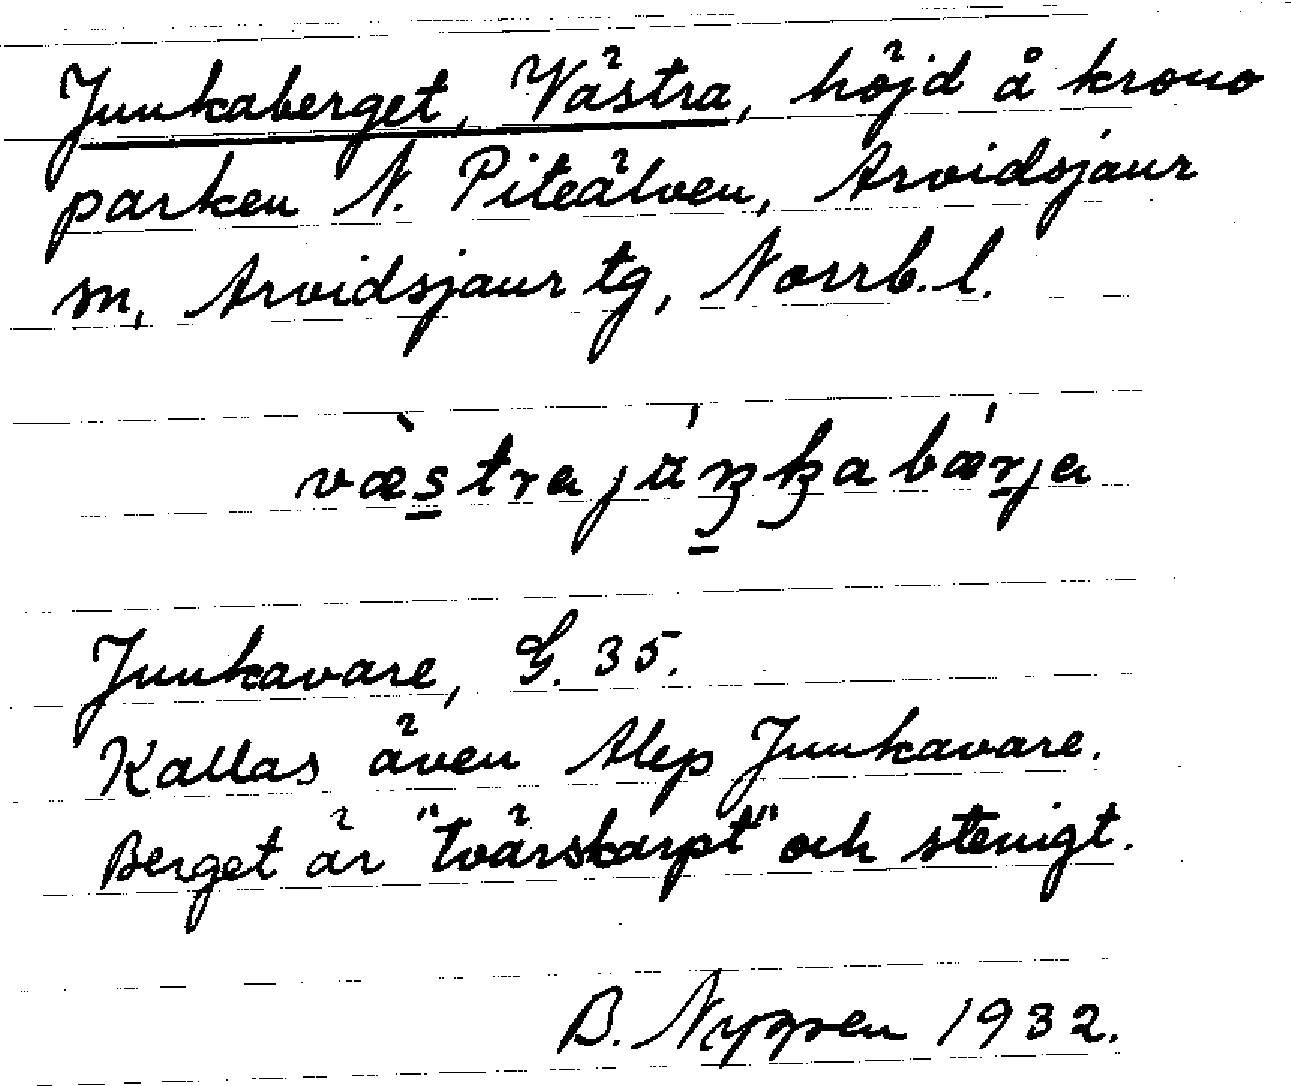 Junkaberget, Västra, höjd å krono
parken N. Piteälven, Arvidsjaur
sn, Arvidsjaur tg, Norrb. l.
Junkavare, G. 35.
Kallas även Alep Junkavare.
Berget är "tvärskarpt" och stenigt.
B. Nygren 1932.